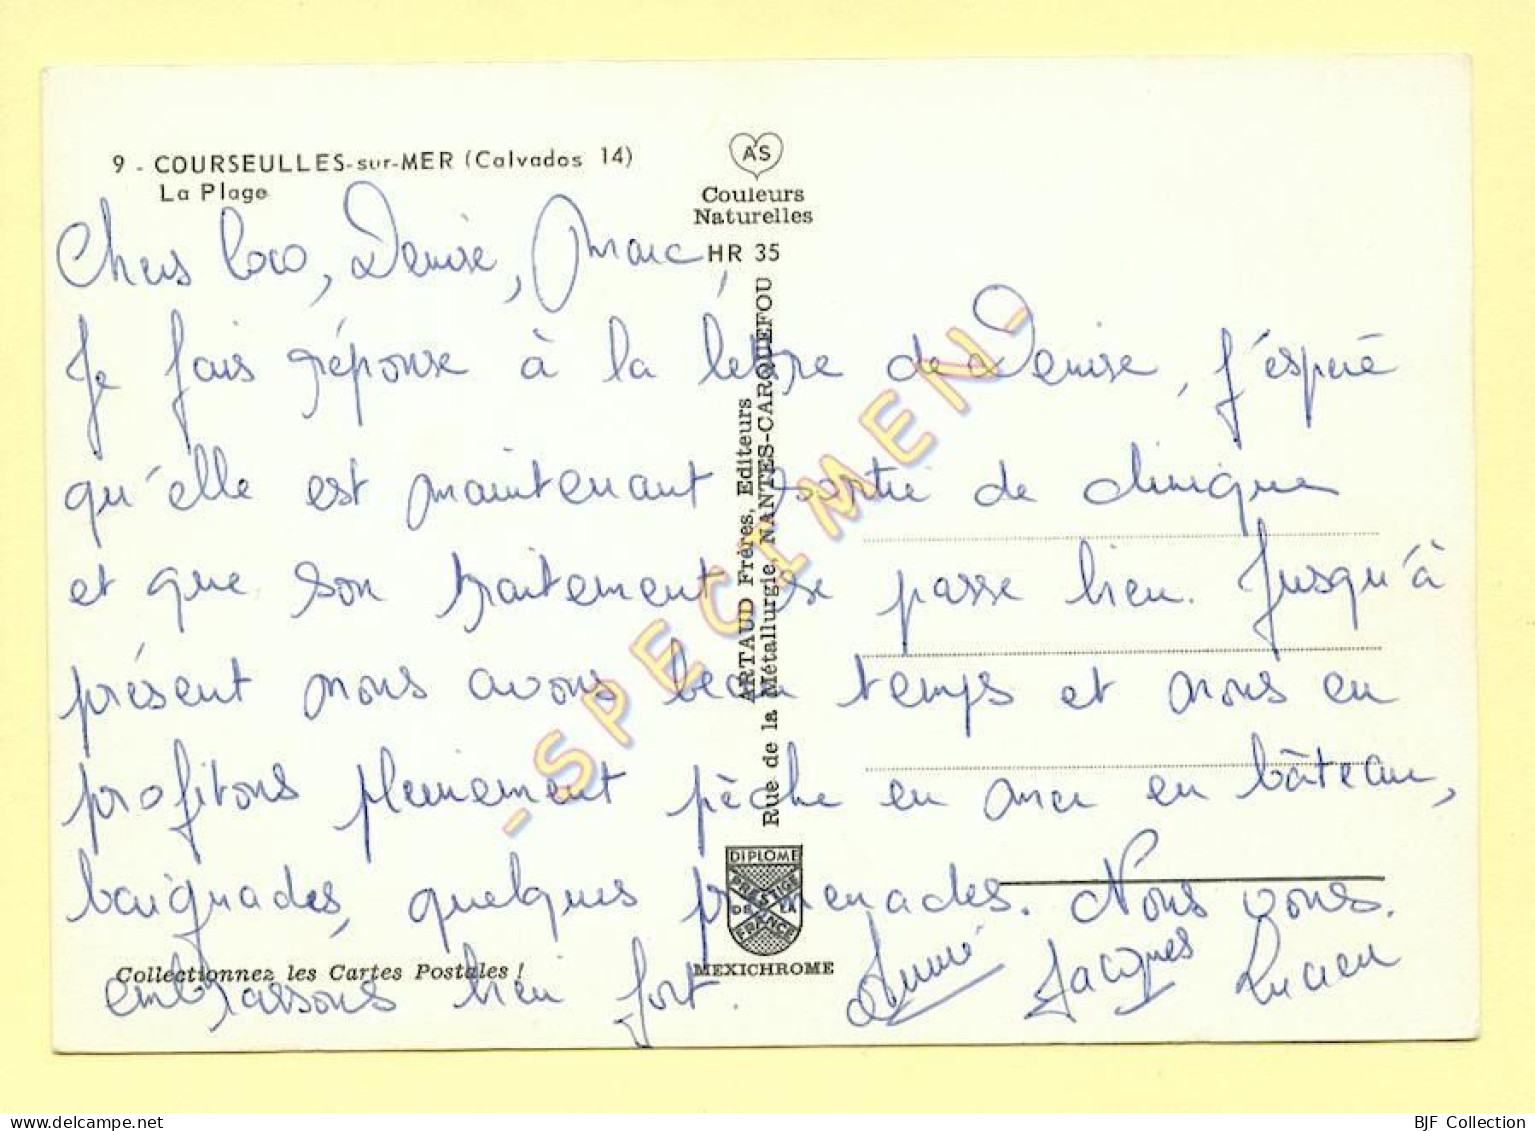 9 - COURSEULLES-sur-MER (Calvados 14)
La Plage
AS
Couleurs
Naturelles
HR 35
Chers Coco, Denise, Marc,
Je fais réponse à la lettre de Denise, j'espère
qu'elle est maintenant sortie de clinique
et que son traitement se passe bien. Jusqu'à
présent nous avons beau temps et nous en
profitons pleinement pêche en mer en bâteau,
baignades, quelques promenades. Nous vous.
embrassons bien fort.
Jacques Lucien
ARTAUD Frères, Editeurs
Rue de la Métallurgie, NANTES-CARQUEFOU
- SPECIMEN -
DIPLOME
PRESTIGE
DE LA
FRANCE
MEXICHROME
Collectionnez les Cartes Postales !
BJF Collection